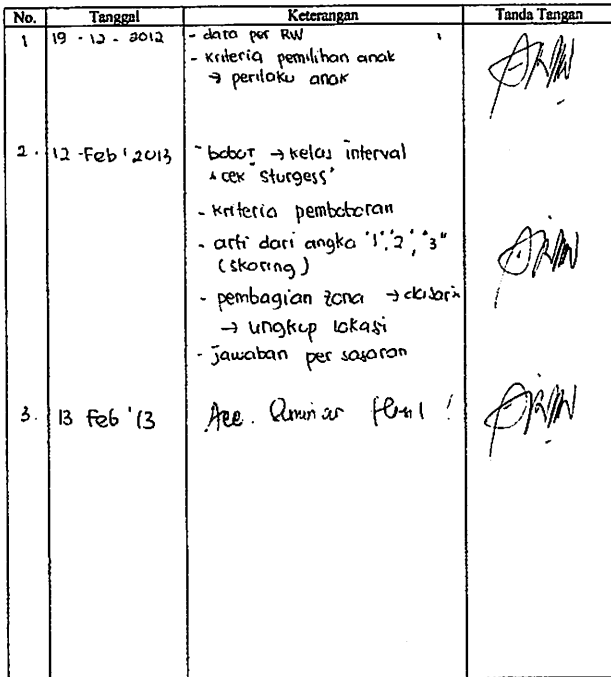 No. Tanggal Keterangan Tanda Tangan
1 19 - 12 - 2012 - data per RW
- kriteria pemilihan anak
→ perilaku anak
2. 12 - Feb ' 2013 - bobot → kelas interval
* cek Sturgess'
- kriteria pembobotan
- arti dari angka "1", "2", "3"
(skoring)
- pembagian zona →
→ ungkap lokasi
- jawaban per sasaran
3. 13 Feb '13 Acc. !